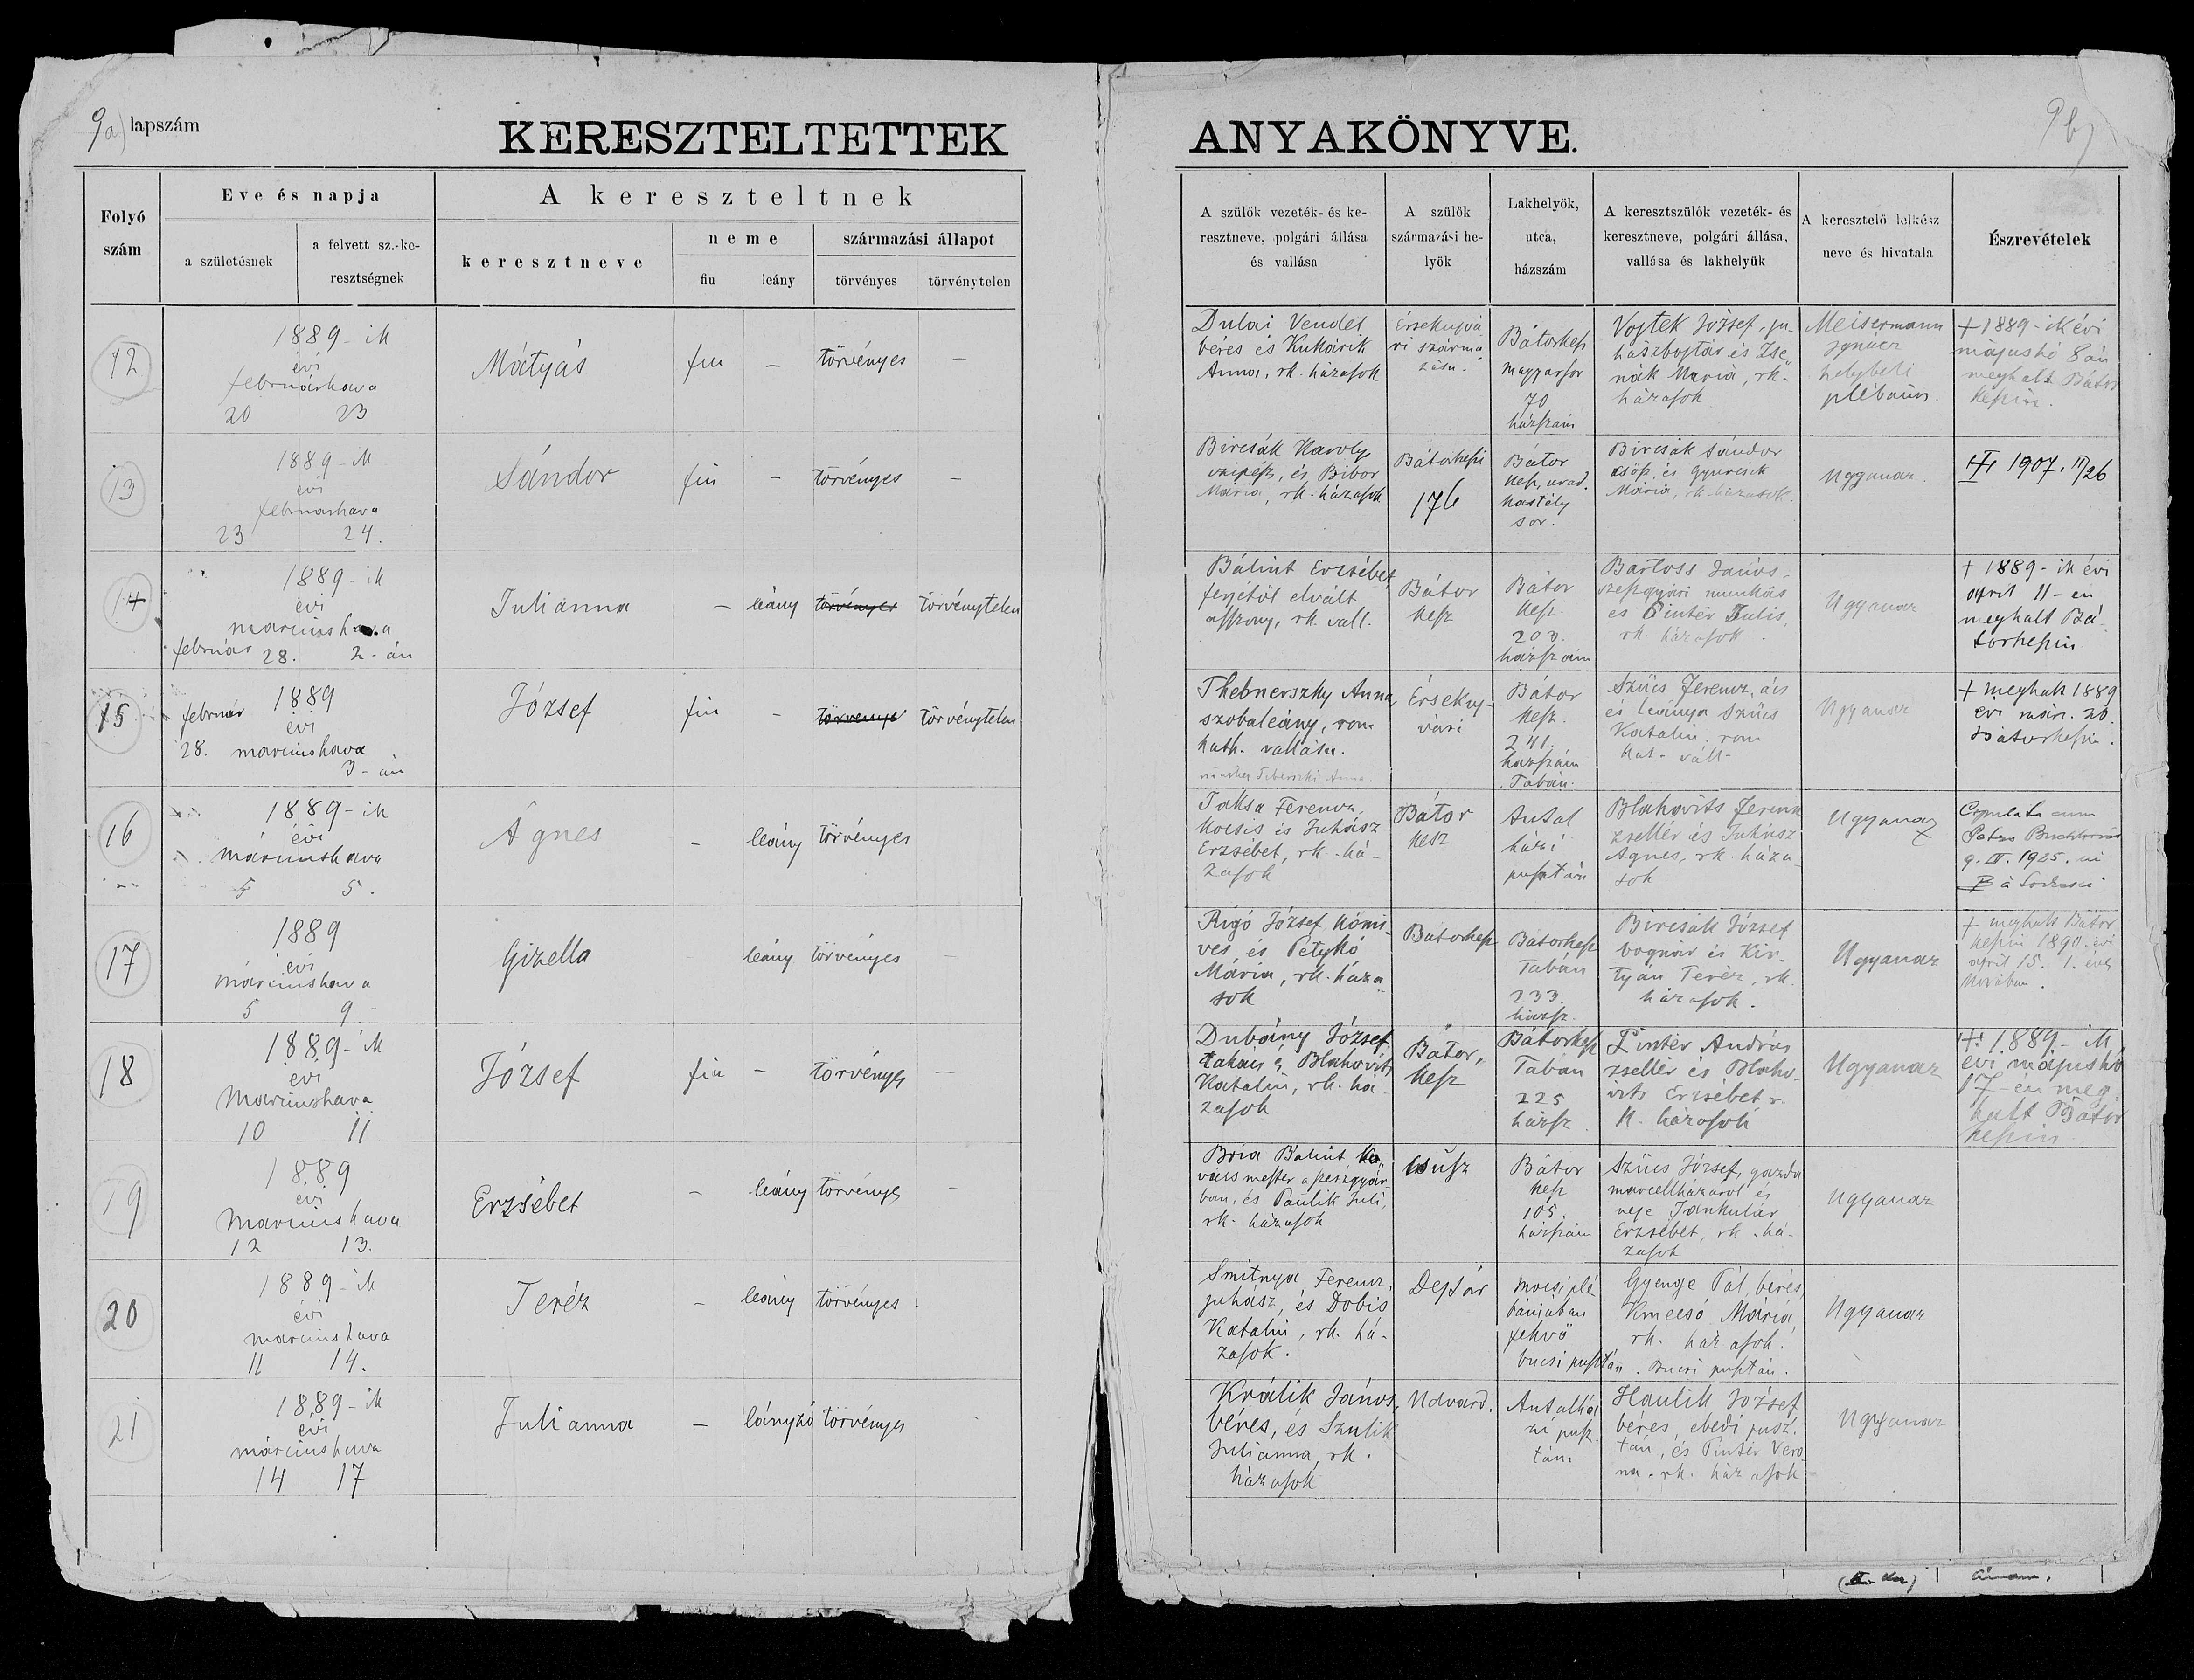 9a) lapszám
KERESZTELTETTEK
ANYAKÖNYVE.
9b)
Folyó szám
Eve és napja
a születésnek
a felvett sz.-keresztségnek
A kereszteltnek
keresztneve
neme
fiu
leány
származási állapot
törvényes
törvénytelen
A szülők vezeték- és ke-
resztneve, polgári állása
és vallása
A szülők
származási he-
lyök
Lakhelyök,
utca,
házszám
A keresztszülők vezeték- és
keresztneve, polgári állása,
vallása és lakhelyük
A keresztelő lelkész
neve és hivatala
Észrevételek
12
1889-ik
évi
februárhava
20 23
Mátyás
fiu
–
törvényes
–
Dulai Vendel
béres és Kukkárik
Anna, rk. házasok
Érsekujvá
ri szárma
zásu.
Bátorkesz
magyarsor
70
házszám
Vojtek József, ju-
hászbojtár és Zse-
nák Maria, rk.
házasok
Meisermann
Ignácz
helybeli
plébános.
+ 1889-ik évi
májushó 8án
meghalt Bátor
keszin.
13
1889-ik
évi
februárhava
23 24.
Sándor
fiu
–
törvényes
–
Bircsák Karoly
és Bibor
Maria, rk. házasok
Bátorkeszi
176
Bátor
kesz, urad.
kastély
sor.
Bircsák Sándor
csősz, és Gyurcsik
Mária, rk. házasok.
Ugyanaz.
1907. II/26
14
1889-ik
évi
marciushava
február 28. 2-án
Julianna
–
leány
törvényes
törvénytelen
Bálint Erzsébet
férjétől elvált
asszony, rk. vall.
Bátor
kesz
Bátor
kesz.
203.
házszám
Bartoss János
szeszgyári munkás
és Pintér Julis,
rk. házasok.
Ugyanaz
+ 1889-ik évi
april 11-en
meghalt Bá-
torkeszin
15
február 1889
évi
28. marciushava
3-án
József
fiu
–
törvényes
törvénytelen
Thebnerszky Anna,
szobaleány, rom
kath. vallásu.
Érsekuj-
vári
Bátor
kesz.
241.
házszám
Tabán.
Szücs Ferencz, ács
és leánya Szücs
Katalin, rom
kat. vall-
Ugyanaz
+ meghalt 1889
évi már. 20.
Bátorkeszin.
16
1889-ik
évi
márciushava
5.
Ágnes
–
leány
törvényes
Taksa Ferencz,
kocsis és Juhász
Erzsébet, rk. há-
zasok
Bátor
kesz
Antal
házi
pusztán
Blahovits Ferencz
zsellér és Juhász
Agnes, rk. háza-
sok
Ugyanaz
Copulata cum
Petro
9. IV. 1925. in
17
1889
évi
márciushava
5 9
Gizella
leány
törvényes
–
Rigó József kőmi-
ves, és Petykó
Mária, rk. háza-
sok
Bátorkesz
Bátorkesz
Tabán
233.
házsz.
Bircsák József
bognár és Kir-
tyán Teréz, rk.
házasok.
Ugyanaz
+ meghalt Bátor
keszin 1890. évi
april 15. 1. éves
korában.
18
1889-ik
évi
Marciushava
10 11
József
fiu
–
törvényes
–
Dubány József
takács és Blahovits
Katalin, rk. há-
zasok
Bátor,
kesz
Bátorkesz
Tabán
225
házsz.
Pintér András
zsellér és Blaho-
vits Erzsébet r.
k. házasok
Ugyanaz
1889-ik
évi májushó
17-én meg
halt Bátor
keszin
19
1889
évi
Marciushava
12 13.
Erzsébet
–
leány
törvényes
–
Bria Bálint Ko-
vács mester a szeszgyár-
ban, és Paulik Juli,
rk. házasok
Csúsz
Bátor
kesz
105.
házszám
Szücs József, gazda
marcellházárol és
neje Jankulár
Erzsébet, rk. há-
zasok
Ugyanaz
20
1889-ik
évi
marciushava
11 14.
Teréz
–
leány
törvényes
Smitnya Ferencz,
juhász, és Dobis
Katalin, rk. há-
zasok.
Deszár
mocsi plé
bániában
fekvő
bucsi pusztán.
Gyenge Pál, béres
Kmecsó Mária,
rk. házasok.
Bucsi pusztán.
Ugyanaz
21
1889-ik
évi
márciushava
14 17
Julianna
–
lányzó
törvényes
–
Králik János,
béres, és Szulik
Julianna, rk.
házasok
Udvard.
Antalhá
zi pusz
tán.
Haulik József
béres, ebedi pusz-
tán, és Pintér Vero
na. rk. házasok
Ugyanaz